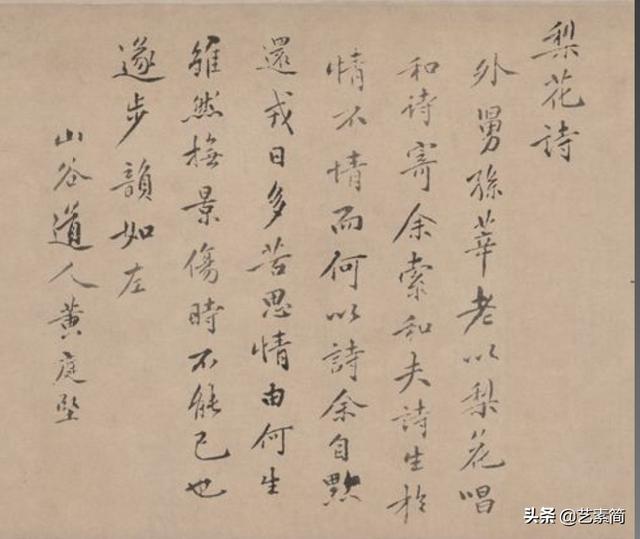 梨花詩
外舅孫莘老以梨花唱
和詩寄余索和夫詩生於
情不情而何以詩余自黔
還戎日多苦思情由何生
雖然撫景傷時不能已也
遂步韻如左
山谷道人黄庭堅
头条 @艺素简